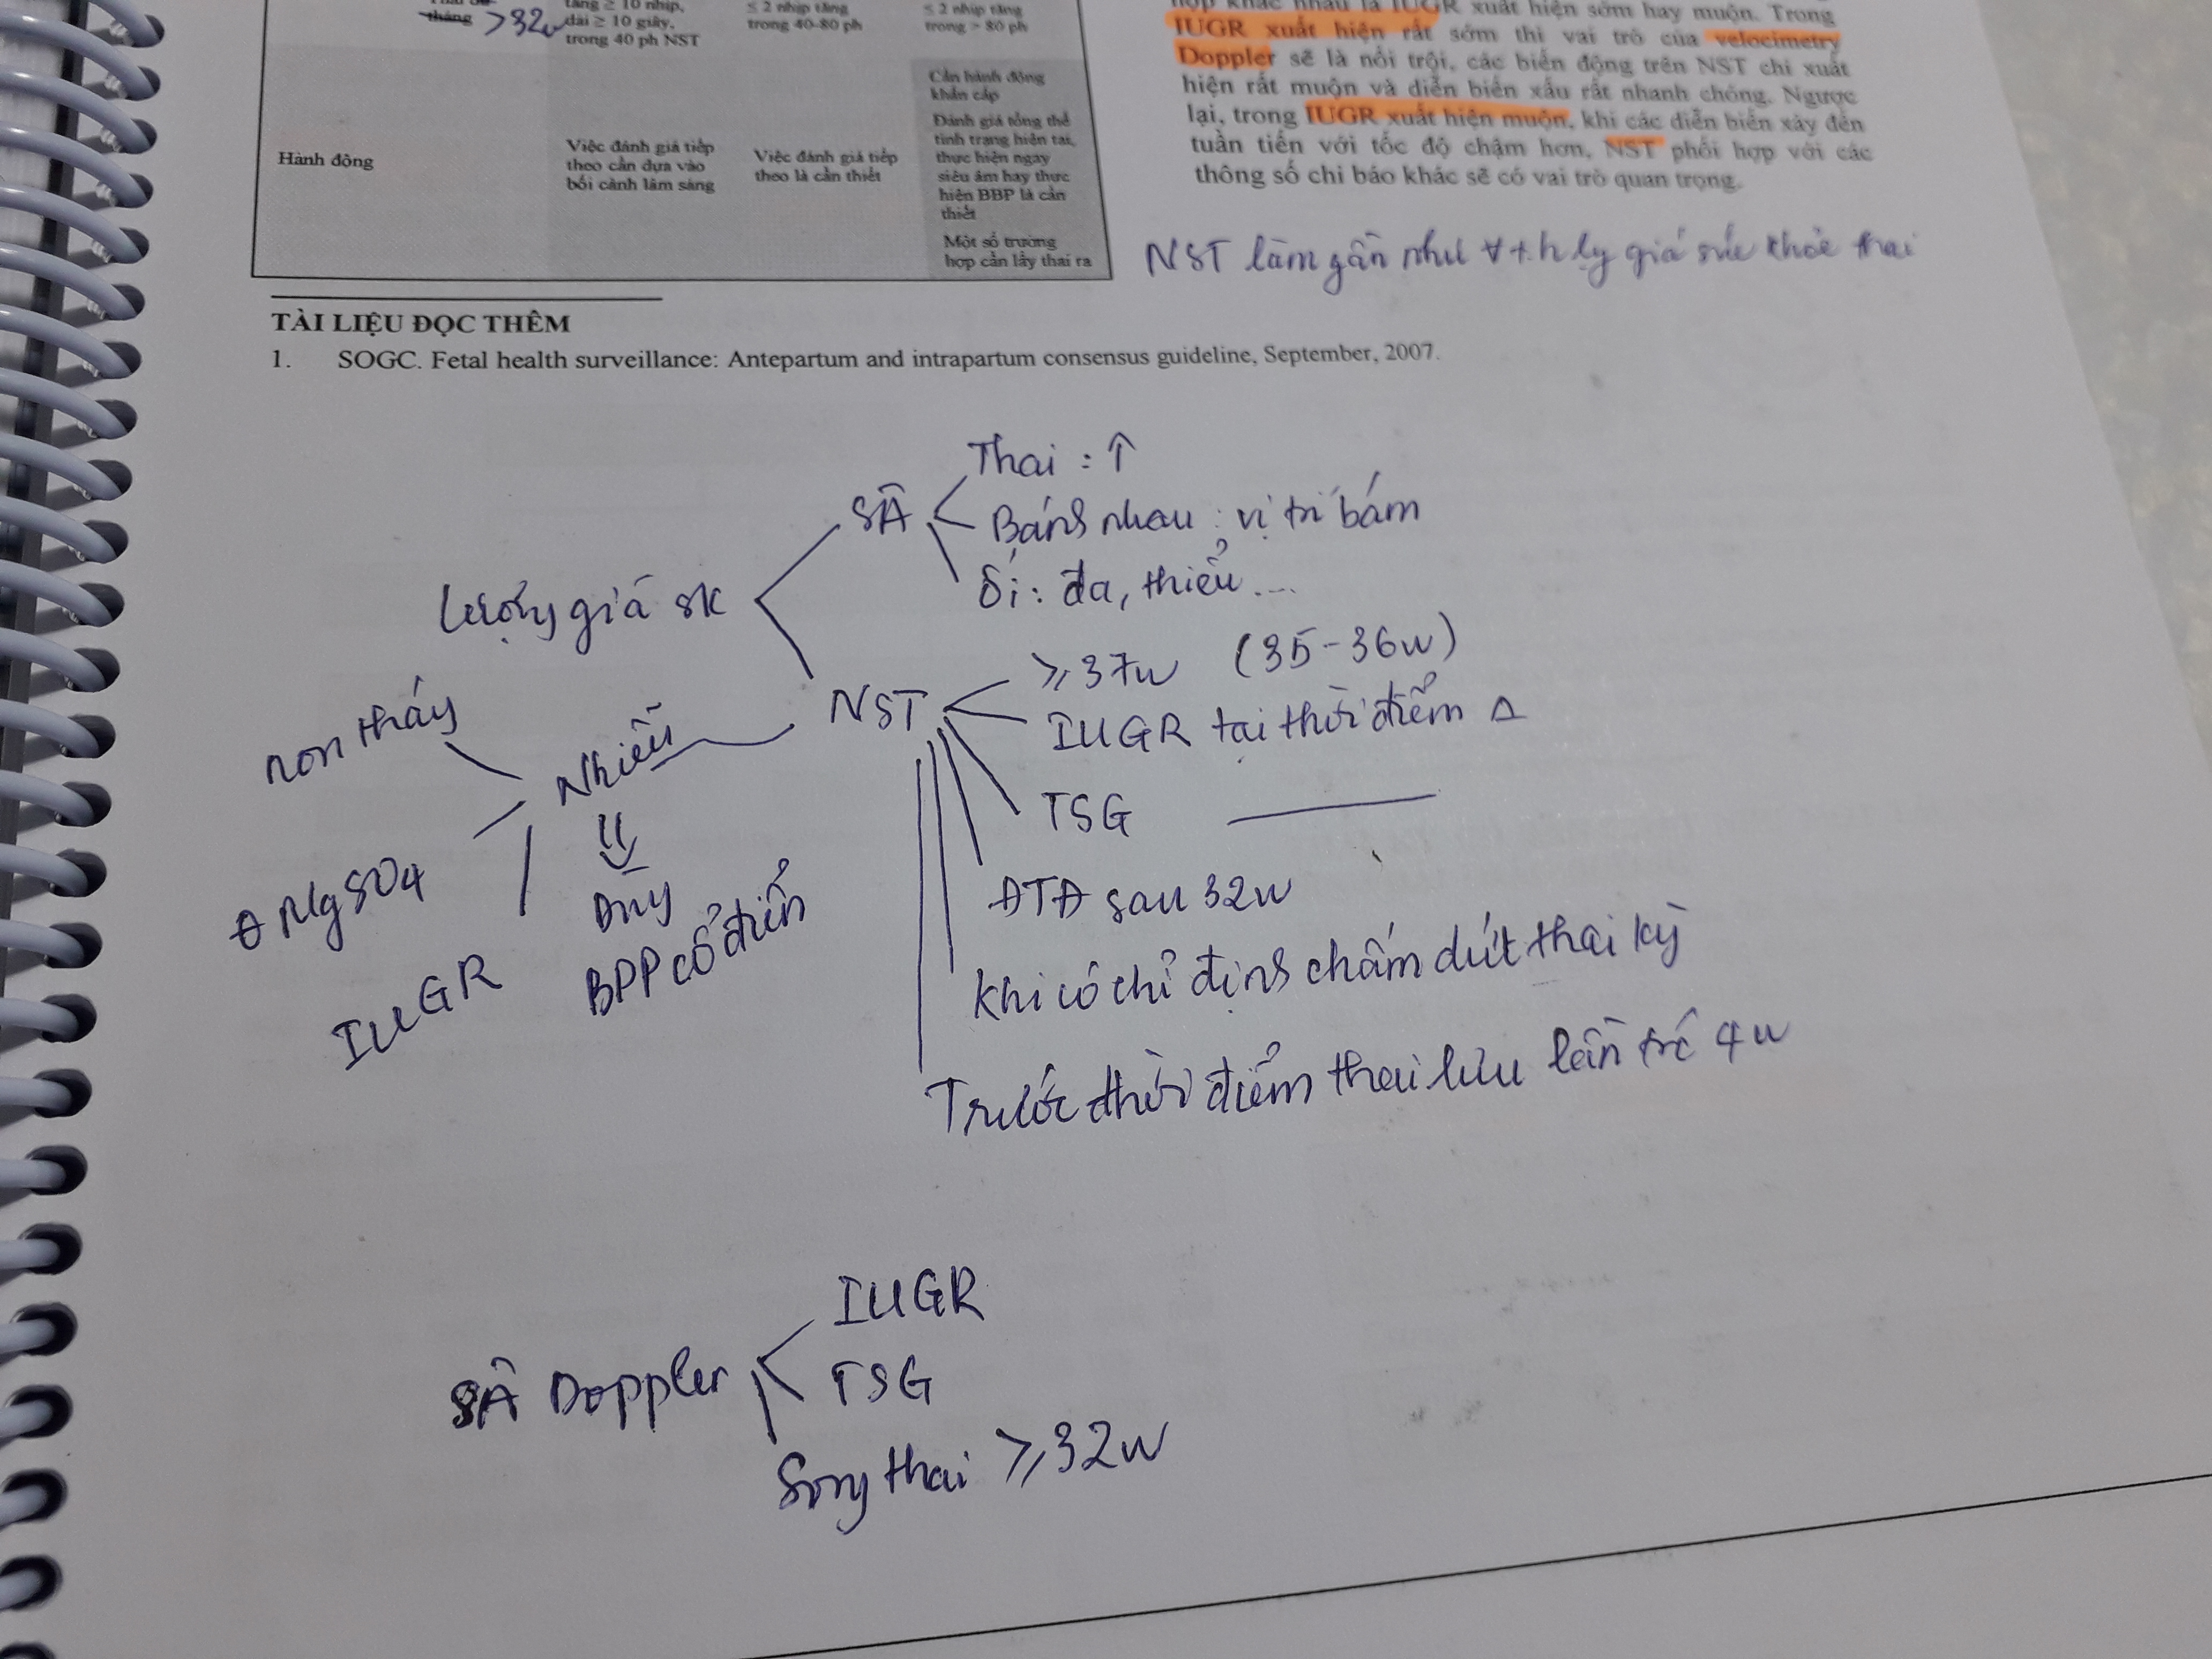 tháng >32w
tăng ≥ 10 nhịp,
dài ≥ 10 giây,
trong 40 ph NST
≤ 2 nhịp tăng
trong 40-80 ph
≤ 2 nhịp tăng
trong > 80 ph
Hành động
Việc đánh giá tiếp
theo cần dựa vào
bối cảnh lâm sàng
Việc đánh giá tiếp
theo là cần thiết
Cần hành động
khẩn cấp
Đánh giá tổng thể
tình trạng hiện tại,
thực hiện ngay
siêu âm hay thực
hiện BBP là cần
thiết
Một số trường
hợp cần lấy thai ra
hợp khác nhau là IUGR xuất hiện sớm hay muộn. Trong
IUGR xuất hiện rất sớm thì vai trò của velocimetry
Doppler sẽ là nổi trội, các biến động trên NST chỉ xuất
hiện rất muộn và diễn biến xấu rất nhanh chóng. Ngược
lại, trong IUGR xuất hiện muộn, khi các diễn biến xảy đến
tuần tiến với tốc độ chậm hơn, NST phối hợp với các
thông số chỉ báo khác sẽ có vai trò quan trọng.
NST làm gần như ∀ t.h lg giá sức khỏe thai
TÀI LIỆU ĐỌC THÊM
1. SOGC. Fetal health surveillance: Antepartum and intrapartum consensus guideline, September, 2007.
Lượng giá sk
SÂ
Thai : ↑
Bánh nhau : vị trí bám
Ối : đa, thiểu ...
NST
≥37w (35-36w)
IUGR tại thời điểm Δ
TSG
ĐTĐ sau 32w
Khi có chỉ định chấm dứt thai kỳ
Trước thời điểm thai lưu lần trc 4w
Nhiễu
non tháng
MgSO4
IUGR
Dùng
BPP cổ điển
SÂ Doppler
IUGR
TSG
Song thai ≥32w